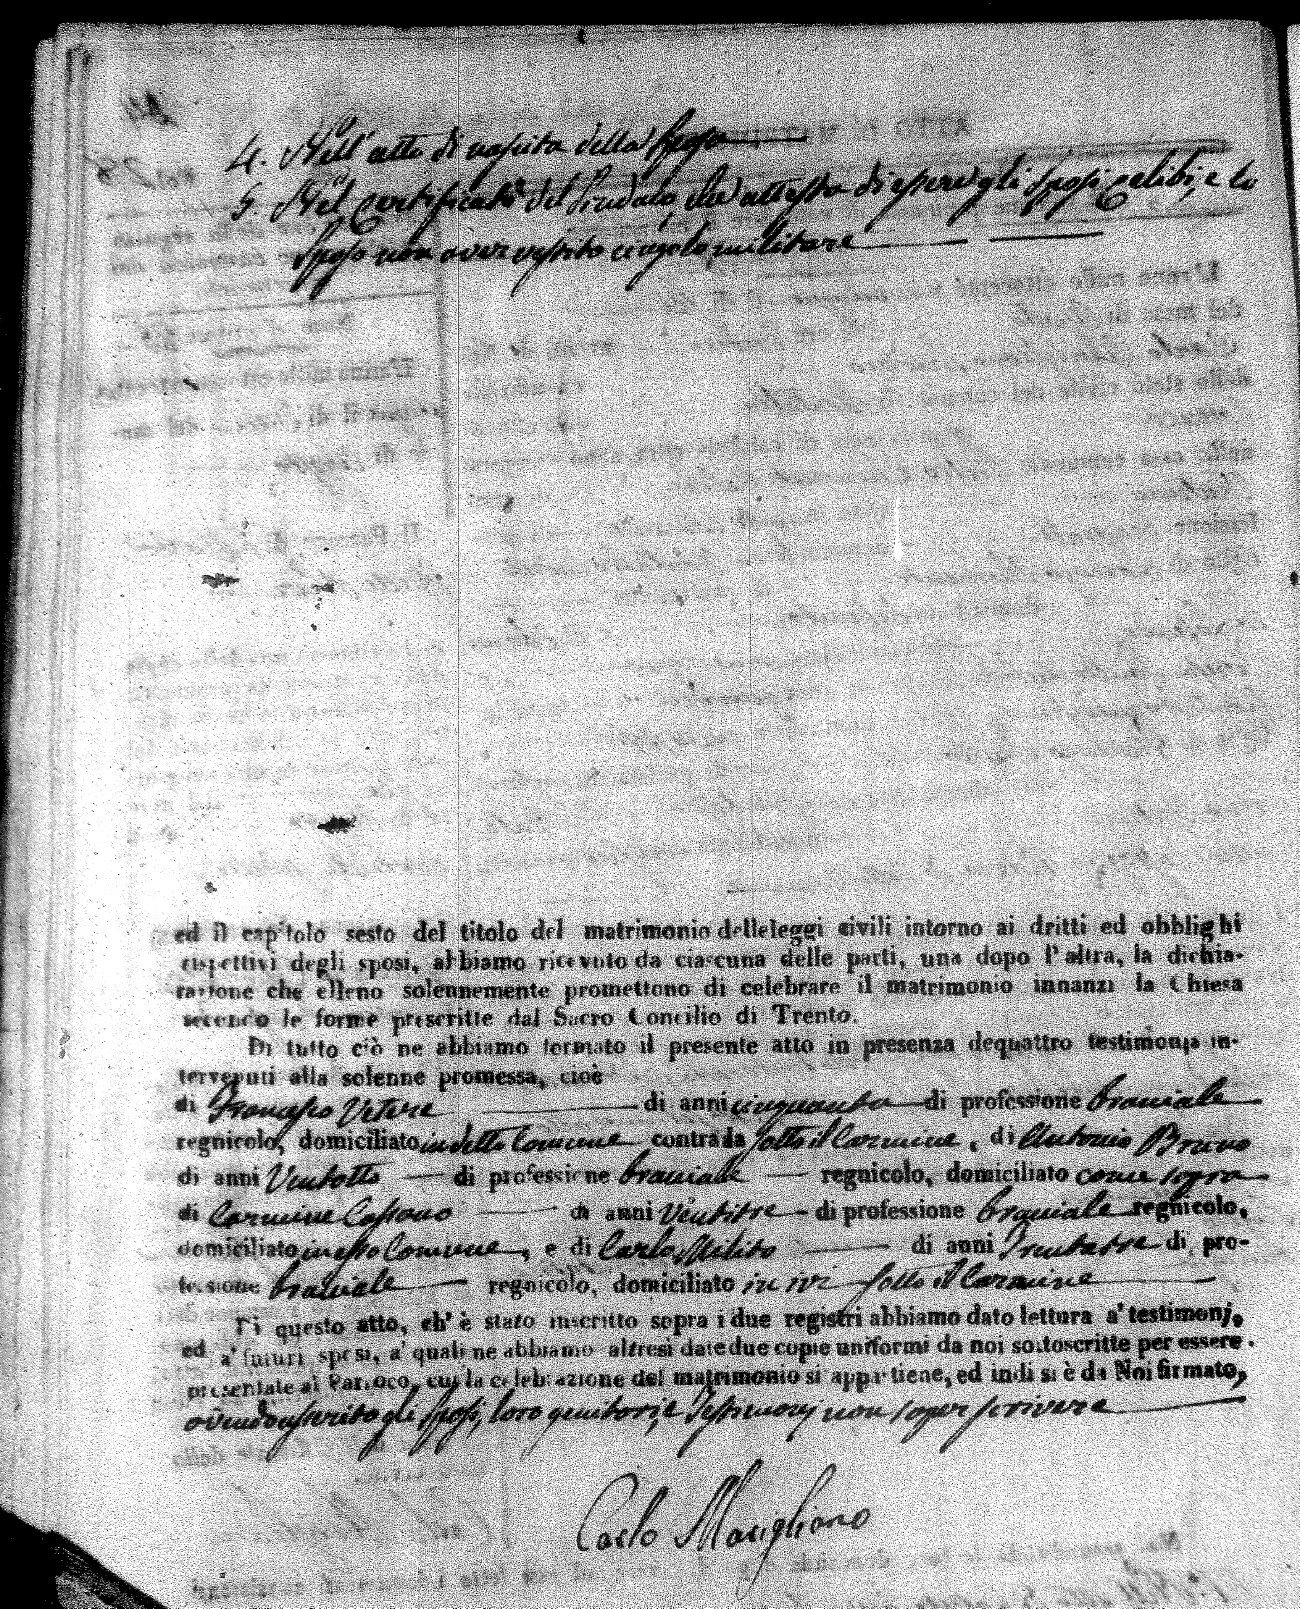 4. Nell' atto di nascita dello Sposo
5. Nel Certificato del Sindaco che attesta di essere gli Sposi celibi, e lo
Sposo non aver vestito cingolo militare
ed il capitolo sesto del titolo del matrimonio delle leggi civili intorno ai dritti ed obblighi
rispettivi degli sposi, abbiamo ricevuto da ciascuna delle parti, una dopo l'altra, la dichia-
razione che elleno solennemente promettono di celebrare il matrimonio innanzi la Chiesa
secondo le forme prescritte dal Sacro Concilio di Trento.
Di tutto ciò ne abbiamo formato il presente atto in presenza de quattro testimonj in-
tervenuti alla solenne promessa, cioè
di Francesco Vetere di anni cinquanta di professione bracciale
regnicolo, domiciliato in detto Comune contrada sotto il Carmine, di Antonio Bruno
di anni Ventotto di professione bracciale regnicolo, domiciliato come sopra
di Carmine Cassano di anni Ventitre di professione bracciale regnicolo,
domiciliato in esso Comune, e di Carlo Milito di anni Trentatre di pro-
fessione bracciale regnicolo, domiciliato in ivi sotto il Carmine
Di questo atto, ch' è stato inscritto sopra i due registri abbiamo dato lettura a' testimonj,
ed a' futuri sposi, a' quali ne abbiamo altresì date due copie uniformi da noi sottoscritte per essere
presentate al Parroco, cui la celebrazione del matrimonio si appartiene, ed indi si è da Noi firmato,
avendo asserito gli Sposi, loro genitori, e Testimonj non saper scrivere
Carlo Marigliano